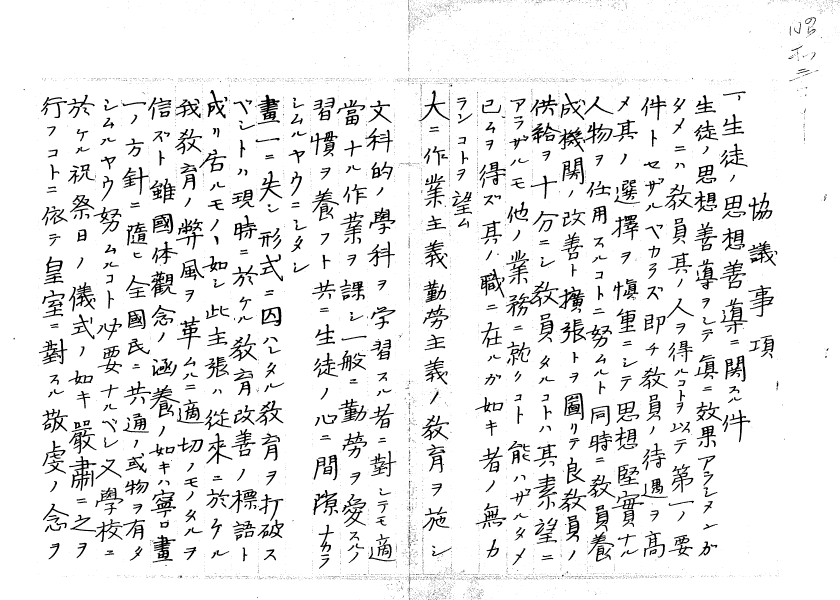 昭和三
協議事項
一、生徒ノ思想善導ニ関スル件
生徒ノ思想善導ヲシテ眞ニ効果アラシメンガ
タメニハ教員其ノ人ヲ得ルコトヲ以テ第一ノ要
件トセザルベカラズ即チ教員ノ待遇ヲ高
メ其ノ選擇ヲ愼重ニシテ思想堅實ナル
人物ヲ任用スルコトニ努ムルト同時ニ教員養
成機関ノ改善ト擴張トヲ圖リテ良教員ノ
供給ヲ十分ニシ教員タルコトハ其素望ニ
アラザルモ他ノ業務ニ就クコト能ハザルタメ
已ムヲ得ズ其ノ職ニ在ルガ如キ者ノ無カ
ランコトヲ望ム
大ニ作業主義勤勞主義ノ教育ヲ施シ
文科的ノ學科ヲ学習スル者ニ對シテモ適
當ナル作業ヲ課シ一般ニ勤勞ヲ愛スルノ
習慣ヲ養フト共ニ生徒ノ心ニ間隙ナカラ
シムルヤウニシタシ
畫一ニ失シ形式ニ囚ハレタル教育ヲ打破ス
ベシトハ現時ニ於ケル教育改善ノ標語ト
成リ居ルモノヽ如シ此主張ハ從來ニ於ケル
我教育ノ弊風ヲ革ムルニ適切ノモノタルヲ
信ズト雖國体觀念ノ涵養ノ如キハ寧ロ畫
一ノ方針ニ隨ヒ全國民ニ共通ノ或物ヲ有タ
シムルヤウ努ムルコト必要ナルベシ又學校ニ
於ケル祝祭日ノ儀式ノ如キ嚴肅ニ之ヲ
行フコトニ依テ皇室ニ對スル敬虔ノ念ヲ